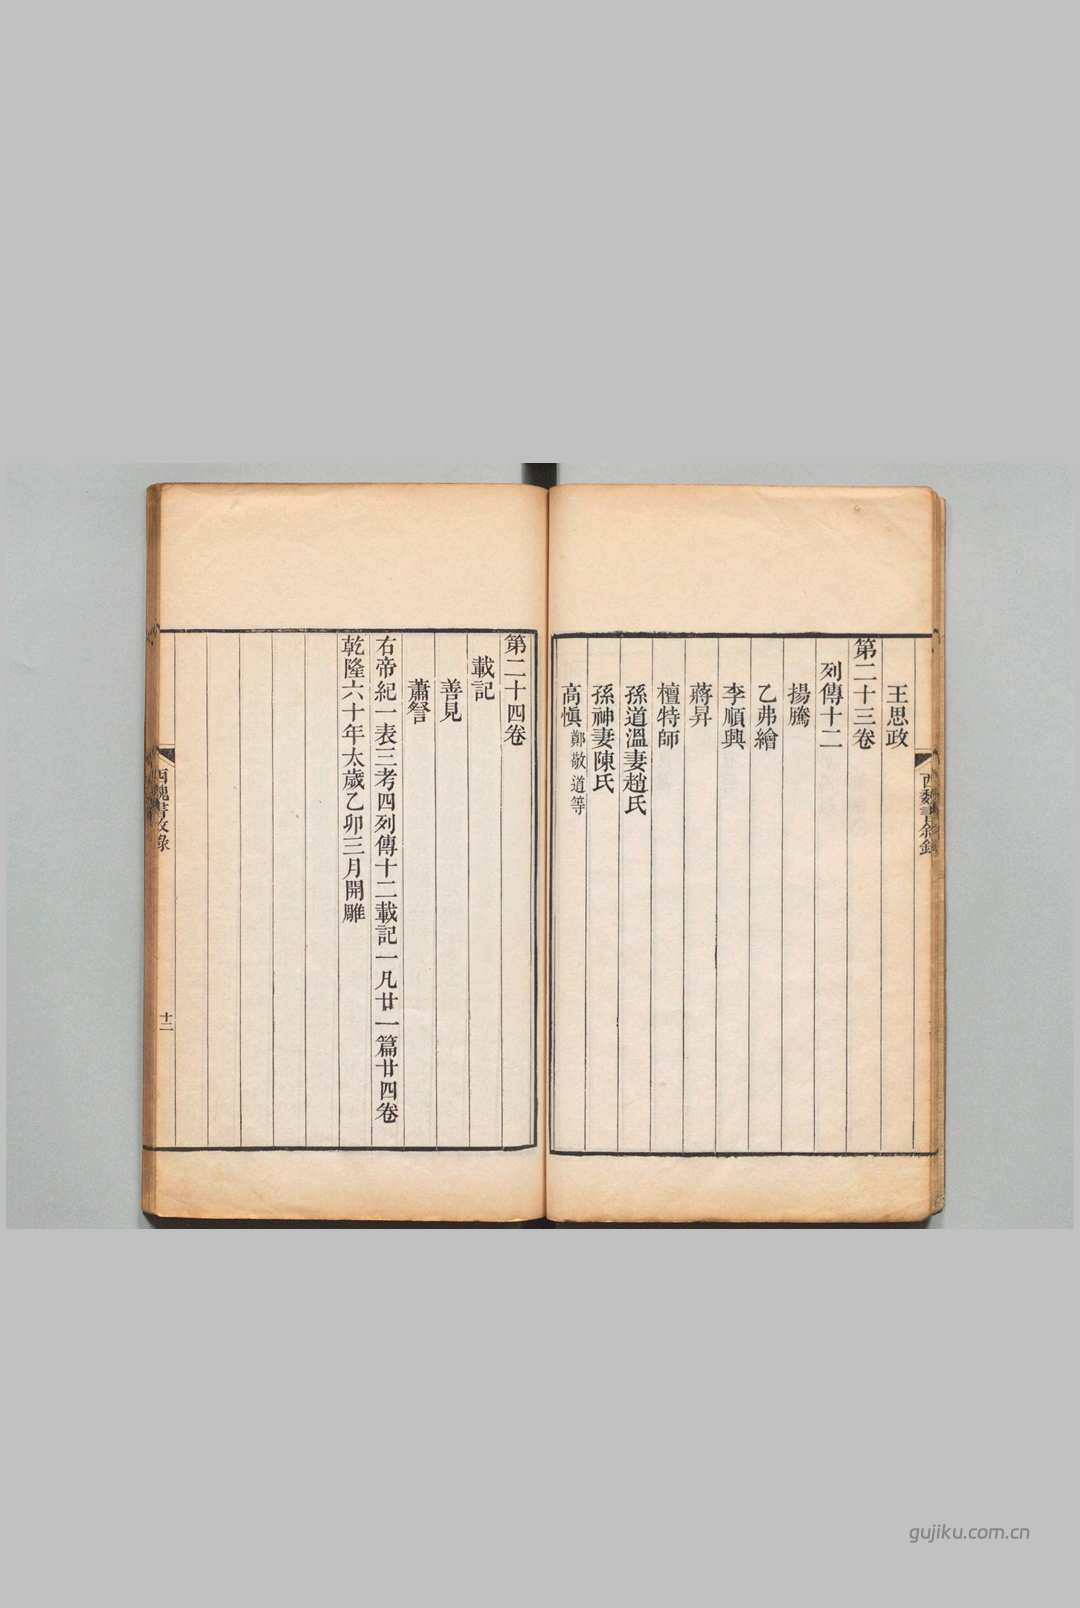 王思政
第二十三卷
列傳十二
揚騰
乙弗繪
李順興
蔣昇
檀特師
孫道溫妻趙氏
孫神妻陳氏
高愼鄭敬道等
第二十四卷
載記
善見
蕭詧
右帝紀一表三考四列傳十二載記一凡廿一篇廿四卷
乾隆六十年太歲乙卯三月開雕
十二
gujiku.com.cn